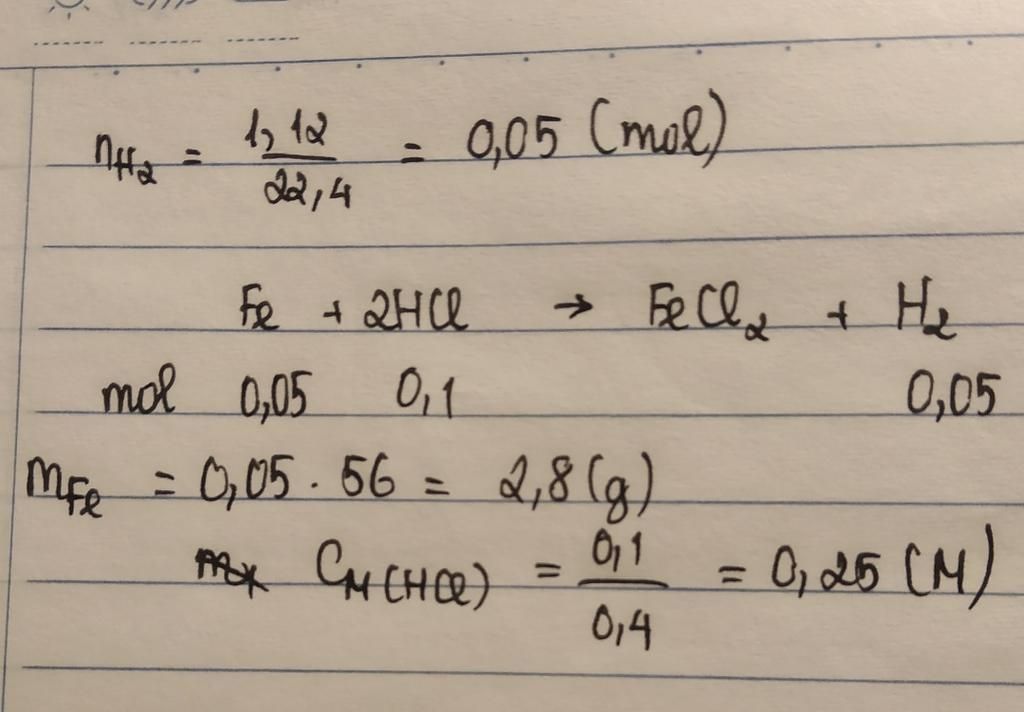 nH₂ = 1,12/22,4 = 0,05 (mol)
Fe + 2HCl → FeCl₂ + H₂
mol 0,05 0,1 0,05
mFe = 0,05 . 56 = 2,8 (g)
CM(HCl) = 0,1/0,4 = 0,25 (M)